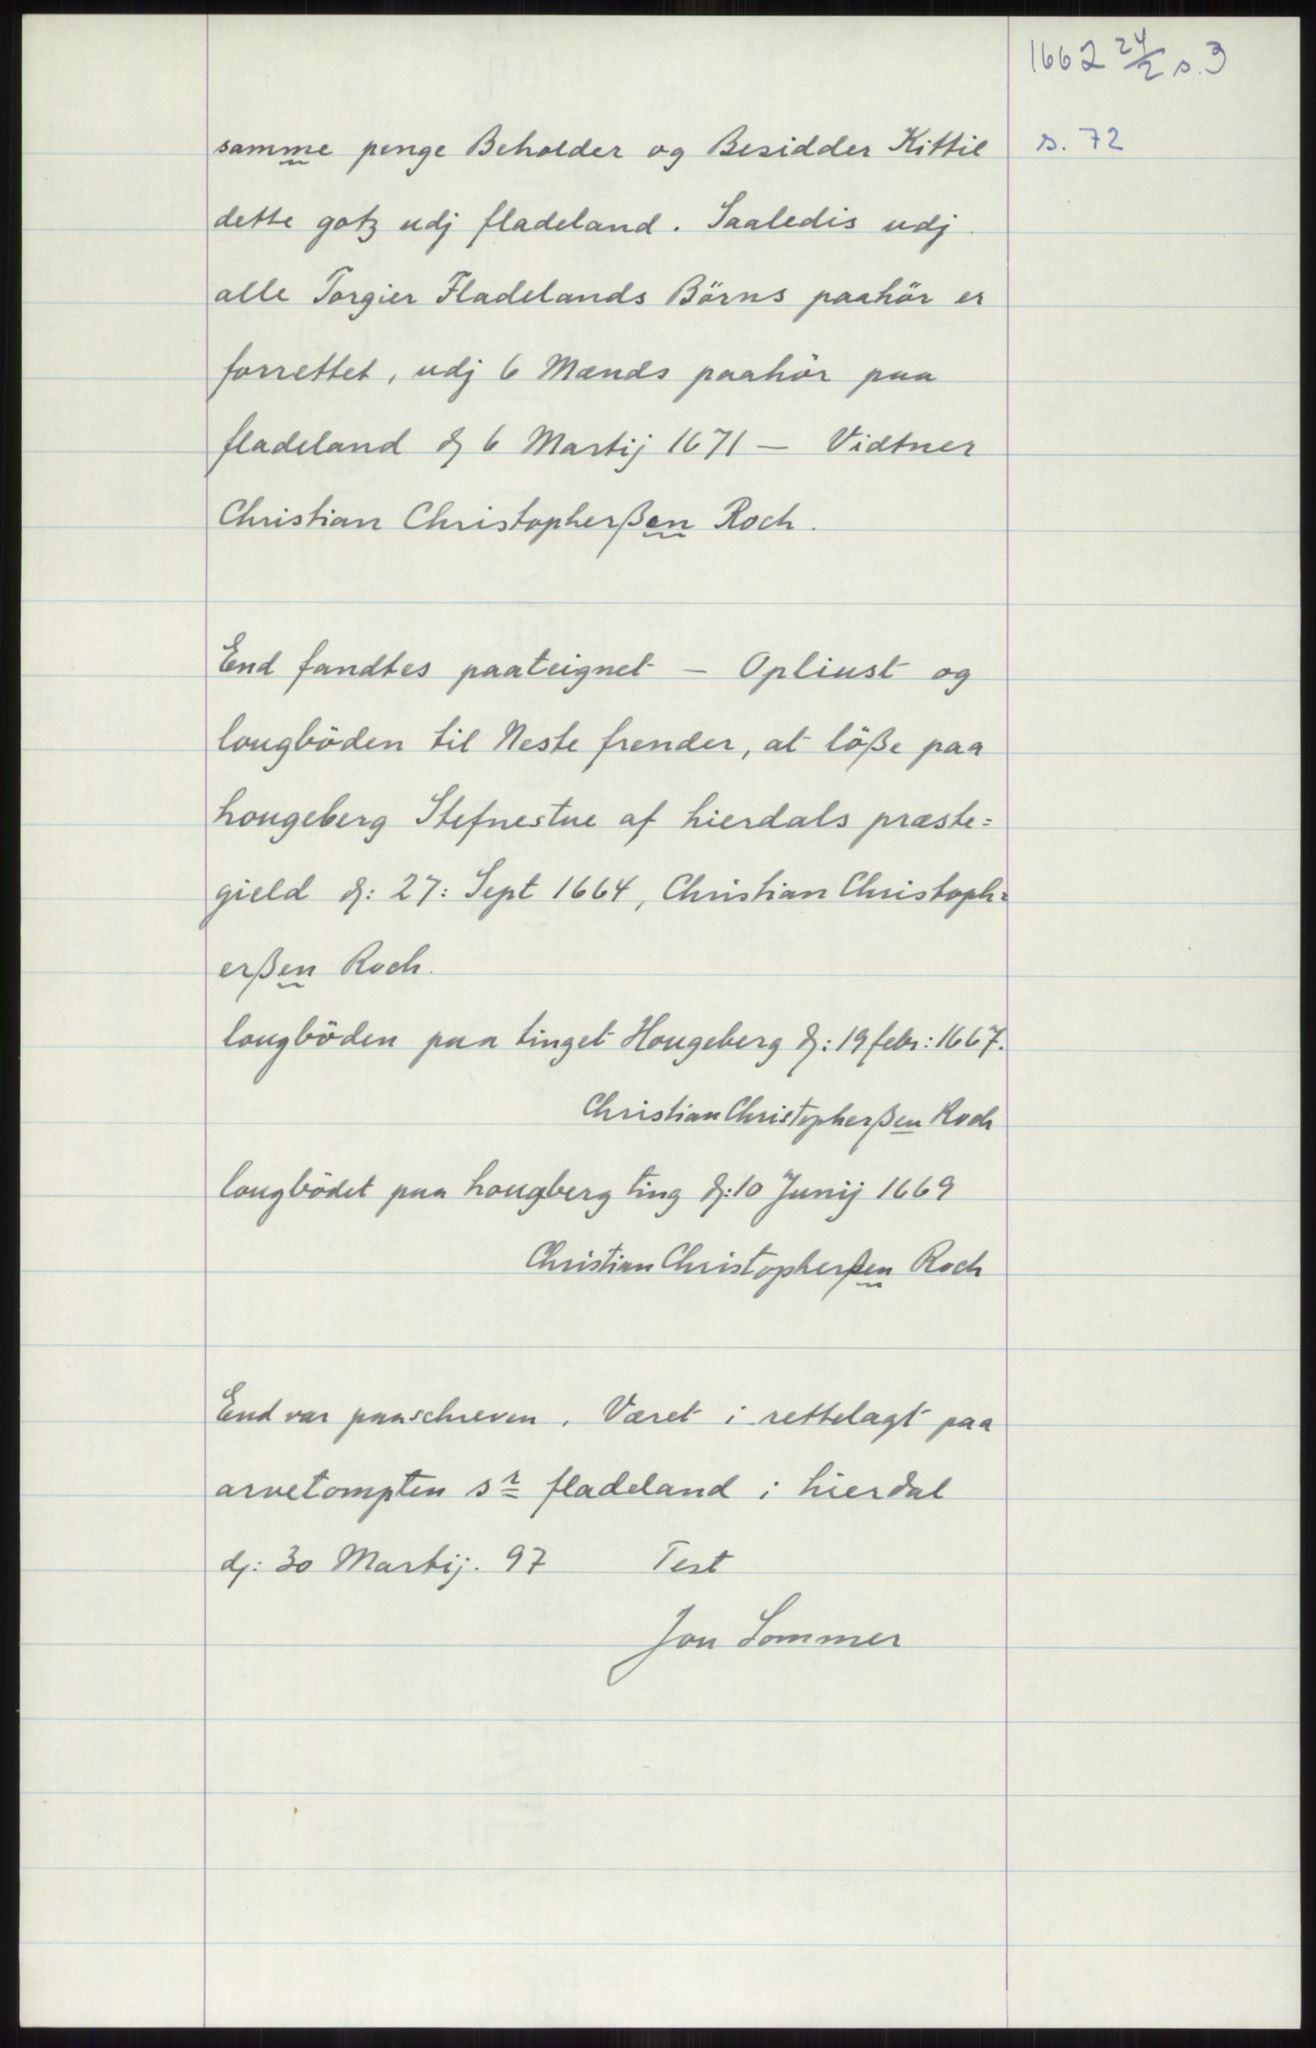 1662 24/2 s. 3
s. 72
samme penge Beholder og Besidder Kittil
dette gotz udj fladeland. Saaledis udj
alle Torgier Fladelands Börns paahör er
forrettet, udj 6 Mænds paahör paa
fladeland dj 6 Martij 1671 — Vidtner
Christian Christopherßen Roch.
End fandtes paateignet — Opliust og
lougböden til Neste frender, at löße paa
hougeberg Stefnestue af hierdals præste=
gield dj: 27: Sept 1664, Christian Christoph=
erßen Roch.
lougböden paa tinget Hougeberg dj: 19 febr: 1667.
Christian Christopherßen Roch
lougbödet paa hougberg ting dj: 10 Junij 1669
Christian Christopherßen Roch
End var paaschreven. Været i rettelagt paa
arvetompten sr fladeland i hierdal
dj: 30 Martij. 97 Test
Jon Sommer